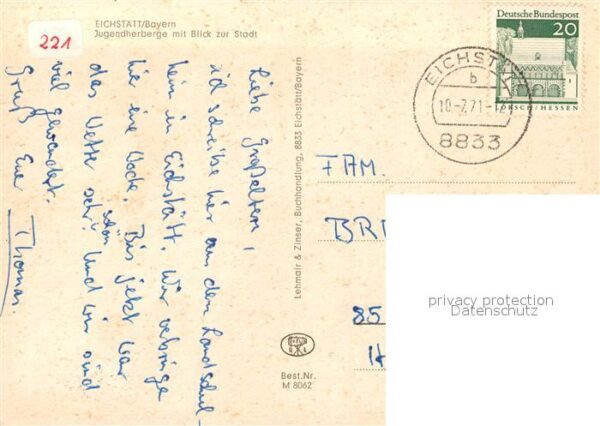 EICHSTÄTT/Bayern
Jugendherberge mit Blick zur Stadt
221
Liebe Großeltern,
ich schreibe hier aus dem Landschul-
heim in Eichstätt. Wir verbringen
hier eine Woche. Bis jetzt war
das Wetter sehr schön und wir sind
viel gewandert.
Gruß Euer Thomas.
Lehmair & Zinser, Buchhandlung, 8833 Eichstätt/Bayern
Best.Nr.
M 8062
Deutsche Bundespost
20
LORSCH/HESSEN
EICHSTÄTT
b
10.-7.71-12
8833
FAM.
BRE
85
privacy protection
Datenschutz